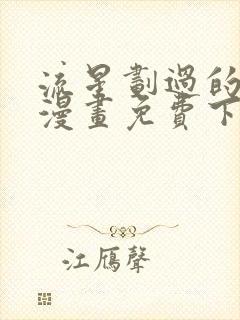 流星劃過的
漫畫免費下
江鴈聲